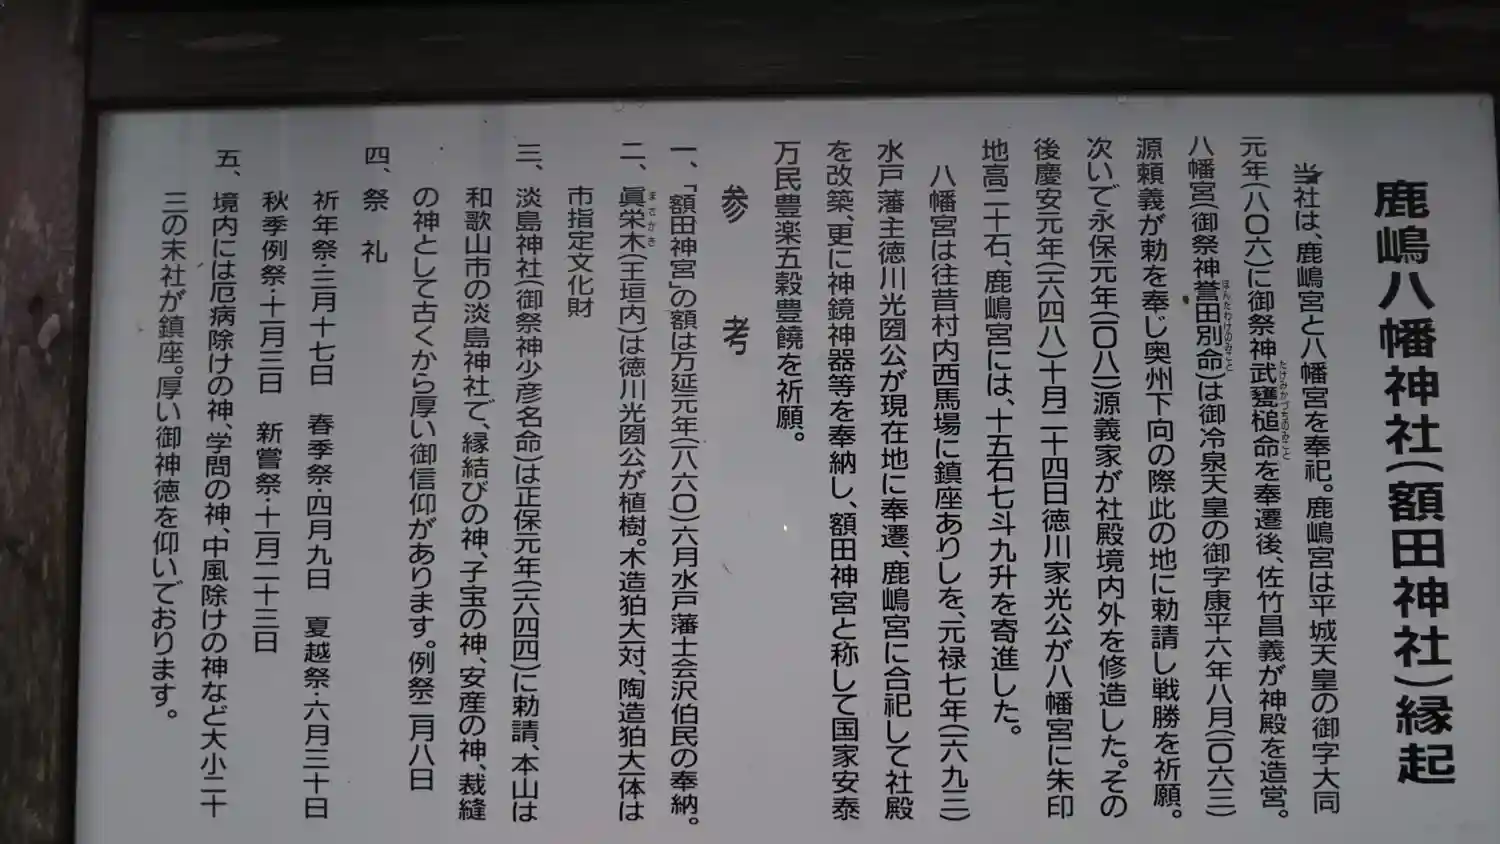 鹿嶋八幡神社(額田神社)縁起
当社は、鹿嶋宮と八幡宮を奉祀。鹿嶋宮は平城天皇の御字大同
元年(八〇六)に御祭神武甕槌命を奉遷後、佐竹昌義が神殿を造営。
たけみかづちのみこと
八幡宮(御祭神誉田別命)は御冷泉天皇の御字康平六年八月(一〇六三)
ほんたわけのみこと
源頼義が勅を奉じ奥州下向の際此の地に勅請し戦勝を祈願。
次いで永保元年(一〇八一)源義家が社殿境内外を修造した。その
後慶安元年(一六四八)十月二十四日徳川家光公が八幡宮に朱印
地高二十石、鹿嶋宮には、十五石七斗九升を寄進した。
八幡宮は往昔村内西馬場に鎮座ありしを、元禄七年(一六九三)
水戸藩主徳川光圀公が現在地に奉遷、鹿嶋宮に合祀して社殿
を改築、更に神鏡神器等を奉納し、額田神宮と称して国家安泰
万民豊楽五穀豊饒を祈願。
参考
一、「額田神宮」の額は万延元年(一八六〇)六月水戸藩士会沢伯民の奉納。
二、眞栄木(王垣内)は徳川光圀公が植樹。木造狛犬一対、陶造狛犬一体は
まさかき
市指定文化財
三、淡島神社(御祭神少彦名命)は正保元年(一六四四)に勅請、本山は
和歌山市の淡島神社で、縁結びの神、子宝の神、安産の神、裁縫
の神として古くから厚い御信仰があります。例祭二月八日
四、祭 礼
祈年祭・三月十七日 春季祭・四月九日 夏越祭・六月三十日
秋季例祭・十一月三日 新嘗祭・十一月二十三日
五、境内には厄病除けの神、学問の神、中風除けの神など大小二十
三の末社が鎮座。厚い御神徳を仰いでおります。